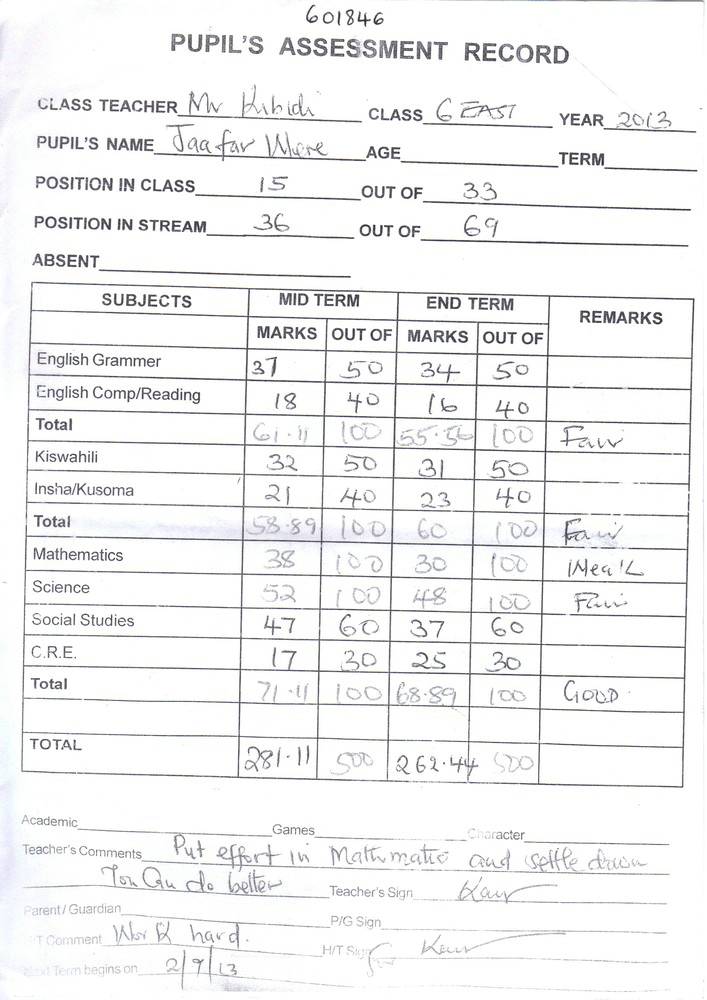 601846
PUPIL'S ASSESSMENT RECORD
CLASS TEACHER Mr Kibidi CLASS 6 EAST YEAR 2013
PUPIL'S NAME Jaafar Were AGE TERM
POSITION IN CLASS 15 OUT OF 33
POSITION IN STREAM 36 OUT OF 69
ABSENT
SUBJECTS MID TERM END TERM REMARKS
MARKS OUT OF MARKS OUT OF
English Grammer 37 50 34 50
English Comp/Reading 18 40 16 40
Total 61.11 100 55.56 100 Fair
Kiswahili 32 50 31 50
Insha/Kusoma 21 40 23 40
Total 58.89 100 60 100 Fair
Mathematics 38 100 30 100
Science 52 100 48 100 Fair
Social Studies 47 60 37 60
C.R.E. 17 30 25 30
Total 71.11 100 68.89 100 GOOD
TOTAL 281.11 500 262.44 500
Academic Games Character
Teacher's Comments Put effort in Mathmatic and settle down
You Can do better Teacher's Sign
Parent / Guardian P/G Sign
H/T Comment Work hard. H/T Sign
Next Term begins on 2/9/13